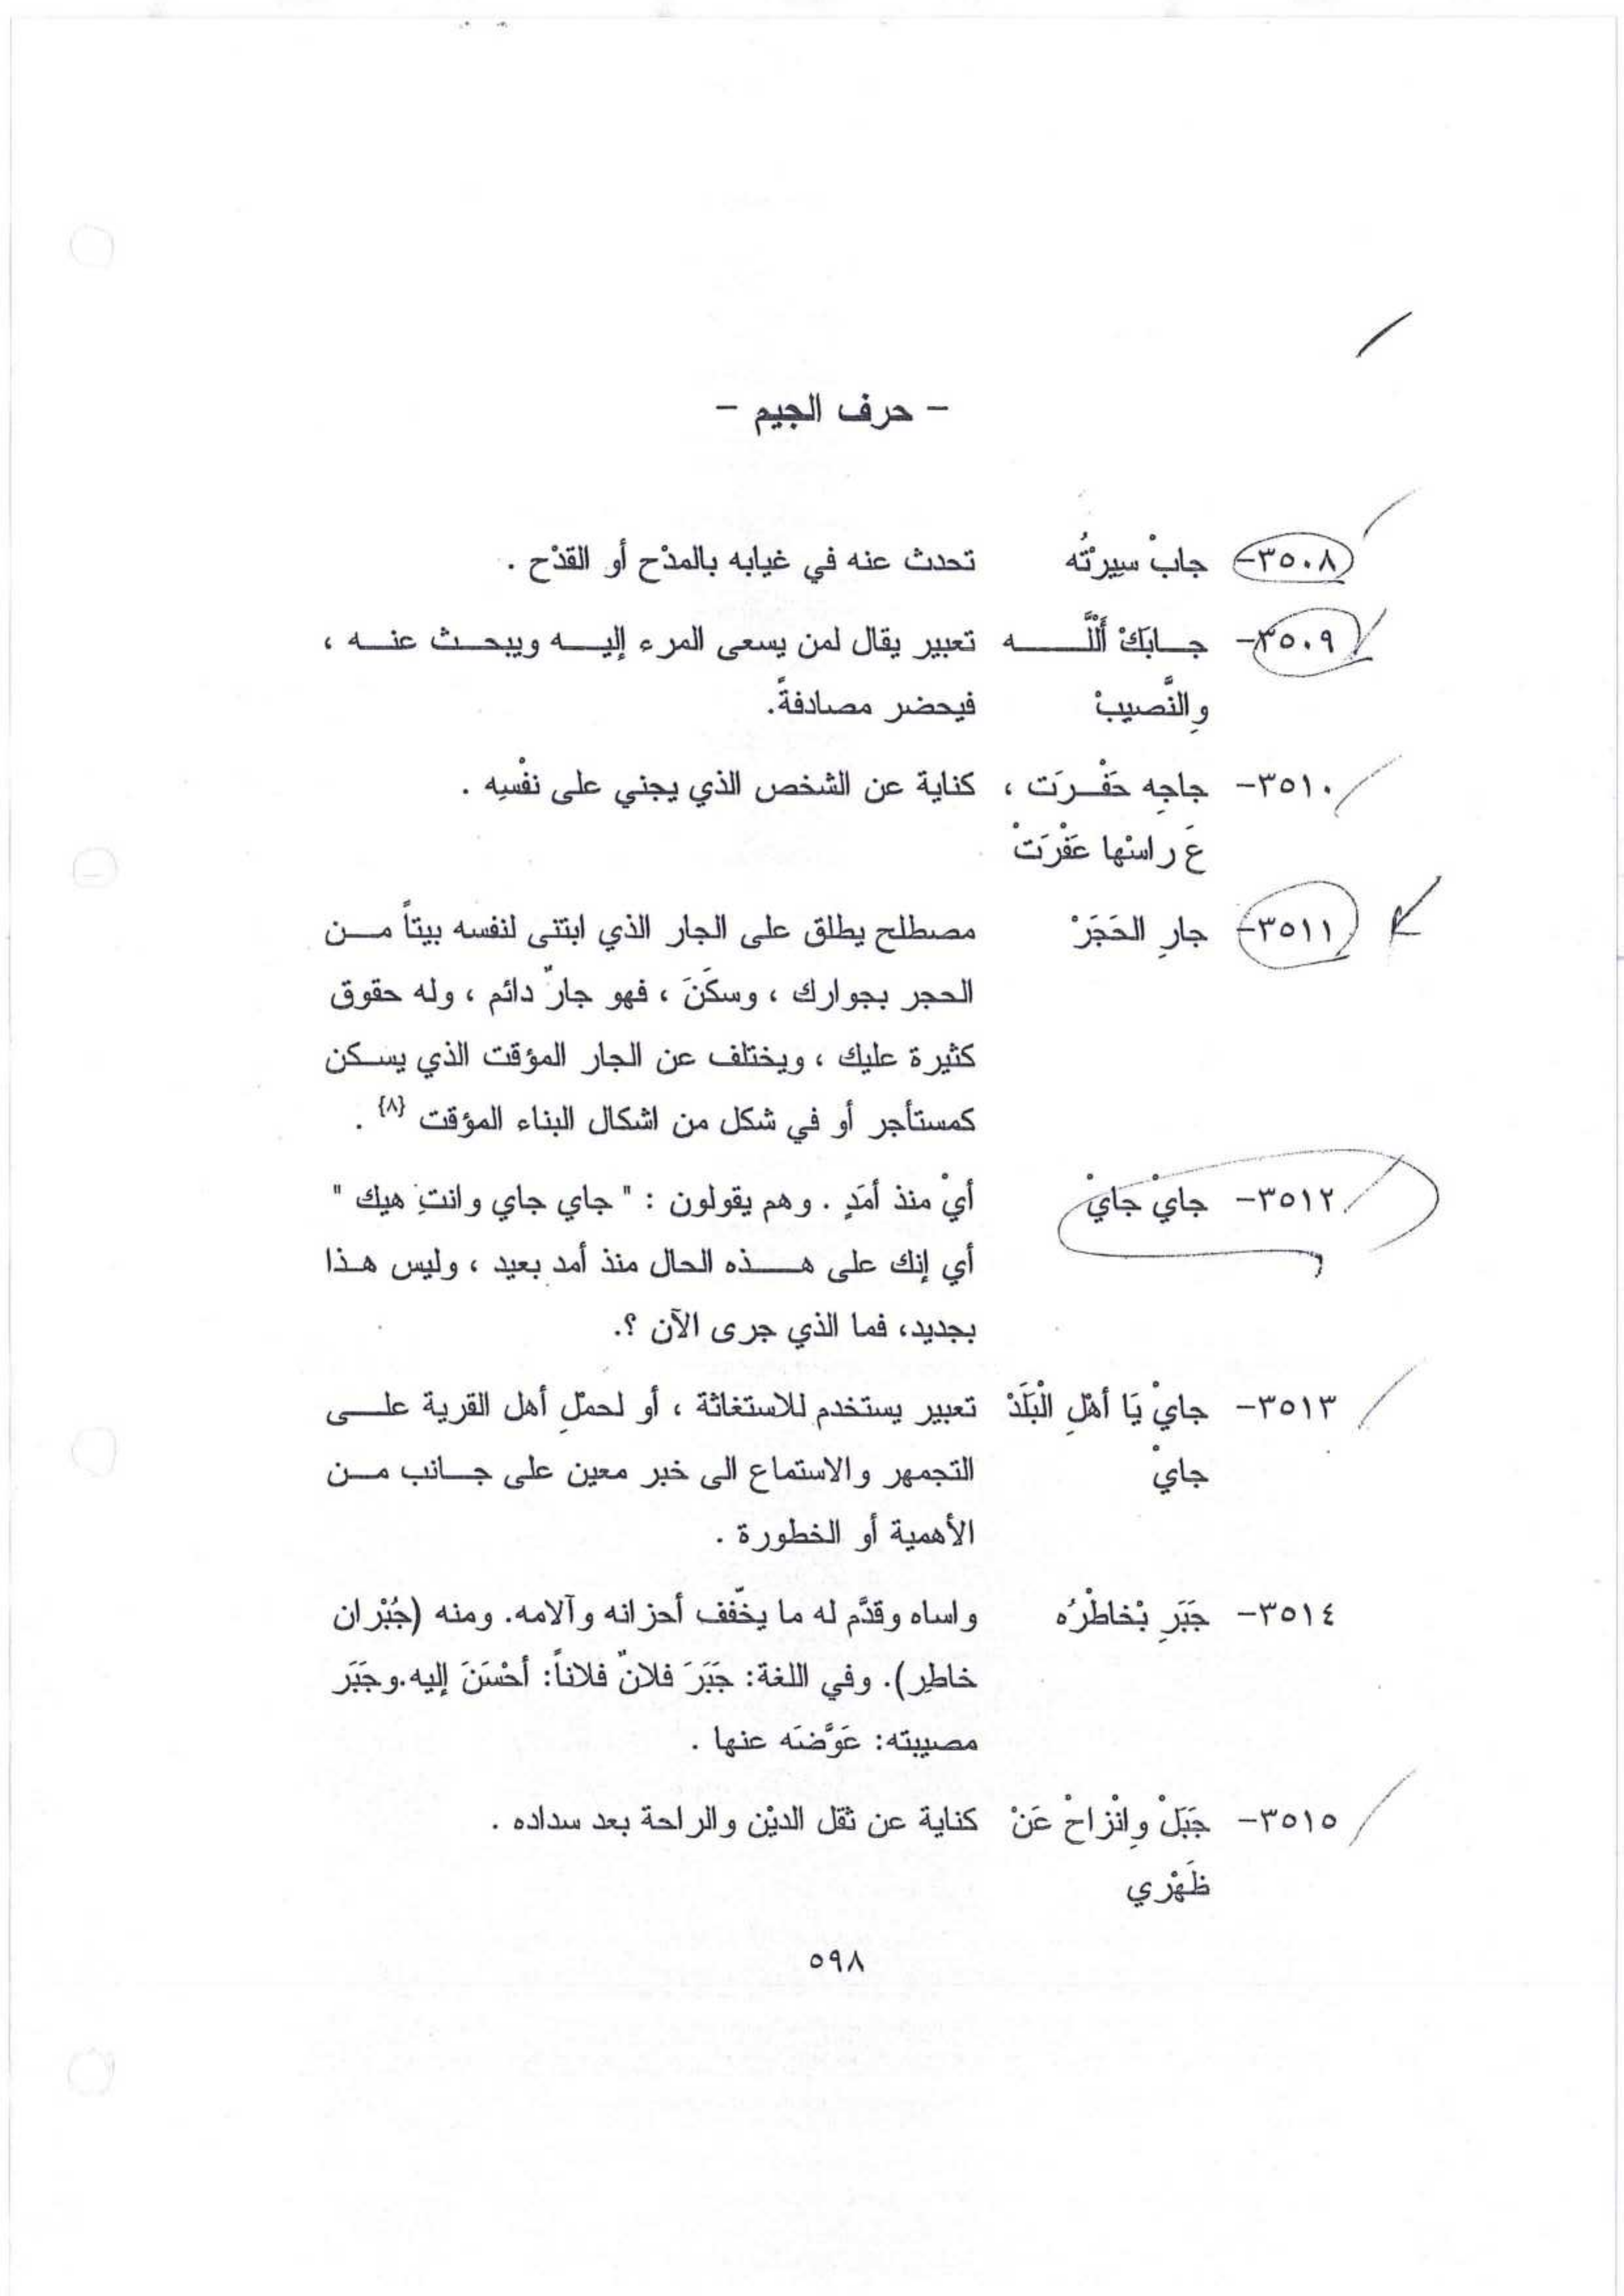 - حرف الجيم -
٣٥٠٨- جابْ سيِرْتُه تحدث عنه في غيابه بالمدْح أو القدْح .
٣٥٠٩- جــابَكْ أَللَّـــــه تعبير يقال لمن يسعى المرء إليـــه ويبحــث عنـــه ،
والنَّصيبْ فيحضر مصادفةً.
٣٥١٠- جاجِه حَفْــرَت ، كناية عن الشخص الذي يجني على نفْسِه .
عَ راسْها عَفْرَتْ
٣٥١١- جارِ الحَجَرْ مصطلح يطلق على الجار الذي ابتنى لنفسه بيتاً مــن
الحجر بجوارك ، وسكَنَ ، فهو جارٌ دائم ، وله حقوق
كثيرة عليك ، ويختلف عن الجار المؤقت الذي يسـكن
كمستأجر أو في شكل من اشكال البناء المؤقت {٨} .
٣٥١٢- جايْ جايْ أيْ منذ أمَدٍ . وهم يقولون : " جاي جاي وانتِ هيك "
أي إنك على هـــــذه الحال منذ أمد بعيد ، وليس هـذا
بجديد، فما الذي جرى الآن ؟.
٣٥١٣- جايْ يَا أهْلِ الْبَلَدْ تعبير يستخدم للاستغاثة ، أو لحملِ أهل القرية علـــى
جايْ التجمهر والاستماع الى خبر معين على جــانب مــن
الأهمية أو الخطورة .
٣٥١٤- جَبَرِ بْخاطْرُه واساه وقدَّم له ما يخفّف أحزانه وآلامه. ومنه (جُبْران
خاطِر). وفي اللغة: جَبَرَ فلانٌ فلاناً: أحْسَنَ إليه.وجَبَر
مصيبته: عَوَّضَه عنها .
٣٥١٥- جَبَلْ وِانْزاحْ عَنْ كناية عن ثقل الديْن والراحة بعد سداده .
ظَهْري
٥٩٨